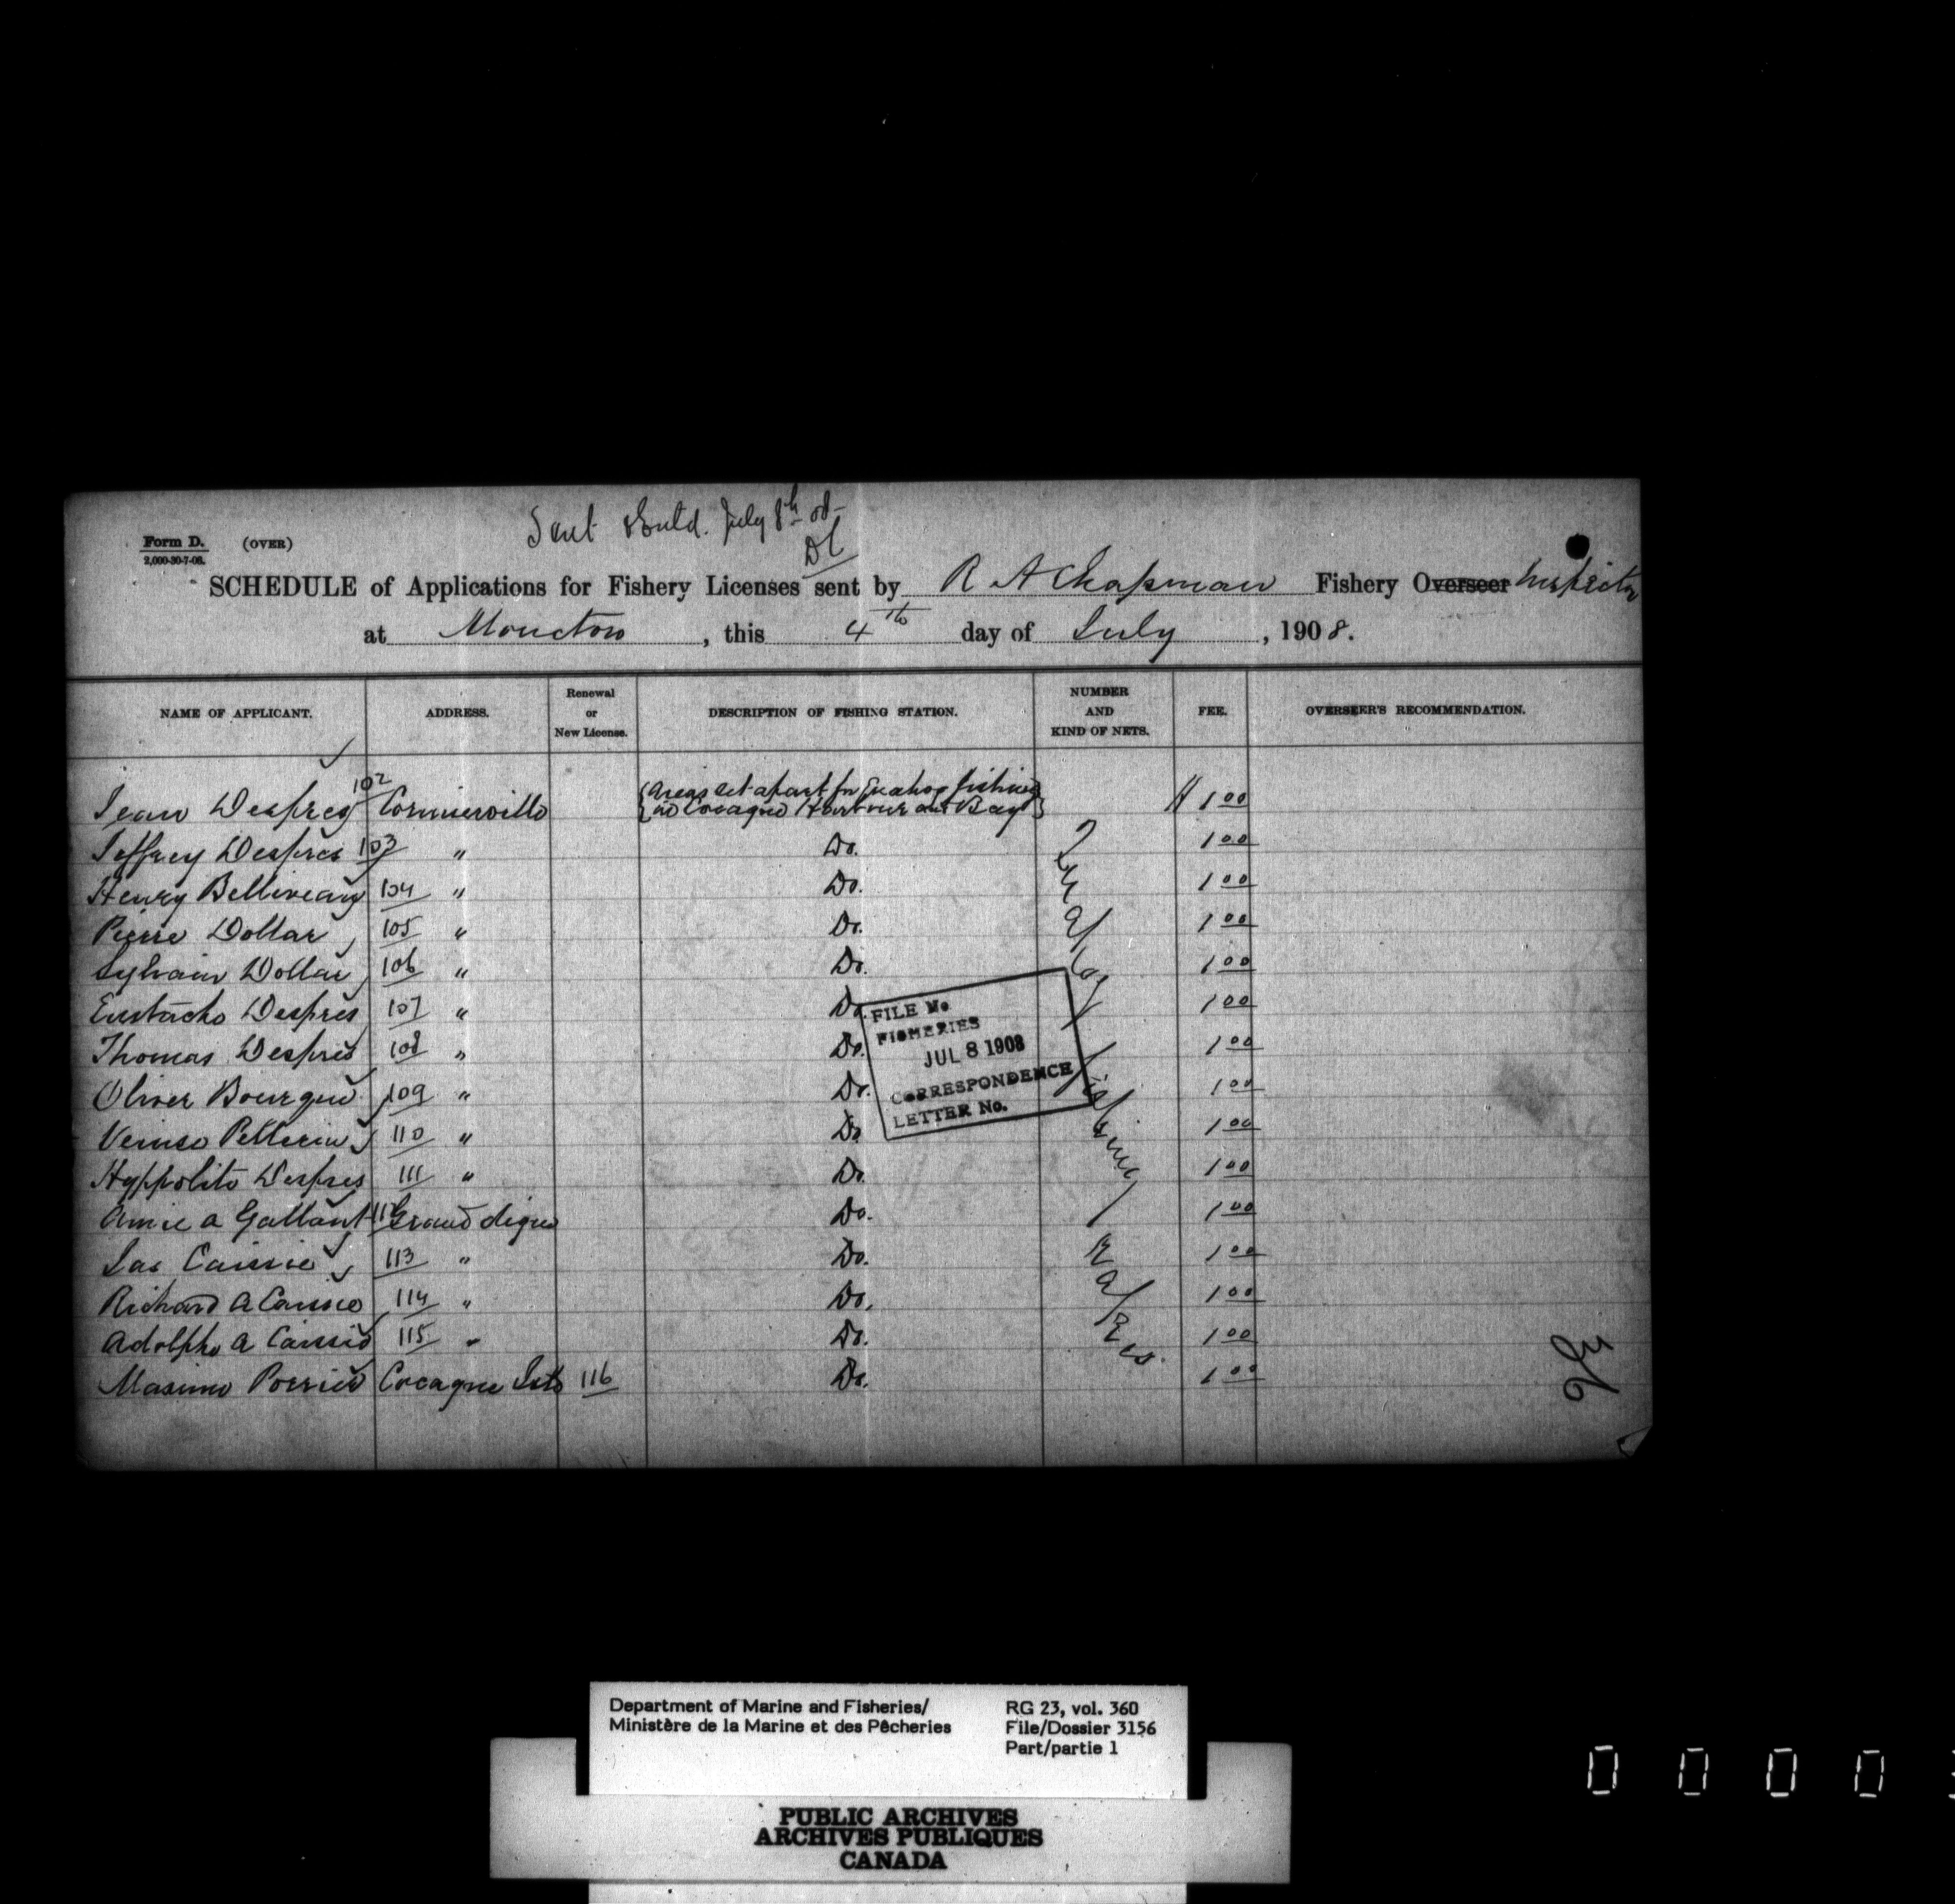 Form D. (OVER) Sent Buld. July 8th 08-
2,000-30-7-06. DL
SCHEDULE of Applications for Fishery Licenses sent by R A Chapman Fishery Overseer Inspector
at Moncton, this 4th day of July, 1908.
NAME OF APPLICANT. ADDRESS. Renewal or New License. DESCRIPTION OF FISHING STATION. NUMBER AND KIND OF NETS. FEE. OVERSEER'S RECOMMENDATION.
Jean Despres 102 Cormierville {Areas set apart for Quahog fishing in Cocagne Harbour and Bay} $1 00
Jeffrey Despres 103 " Do. 1 00
Henry Belliveau 104 " Do. 1 00
Pierre Dollar 105 " Do. 1 00
Sylvain Dollar 106 " Do. 1 00
Eustache Despres 107 " Do. 1 00
Thomas Despres 108 " Do. 1 00
Oliver Bourque 109 " Do. 1 00
Pellerin 110 " Do. 1 00
Hyppolite Despres 111 " Do. 1 00
Amie A Gallant 112 Grand digue Do. 1 00
Jas Caissie 113 " Do. 1 00
Richard A Caissie 114 " Do. 1 00
Adolphe A Caissie 115 " Do. 1 00
Maxime Poirrier Cocagne 116 Do. 1 00
Quahog fishing Rakes.
FILE No.
FISHERIES
JUL 8 1908
CORRESPONDENCE
LETTER No.
36
Department of Marine and Fisheries/
Ministère de la Marine et des Pêcheries
RG 23, vol. 360
File/Dossier 3156
Part/partie 1
PUBLIC ARCHIVES
ARCHIVES PUBLIQUES
CANADA
0 0 0 0